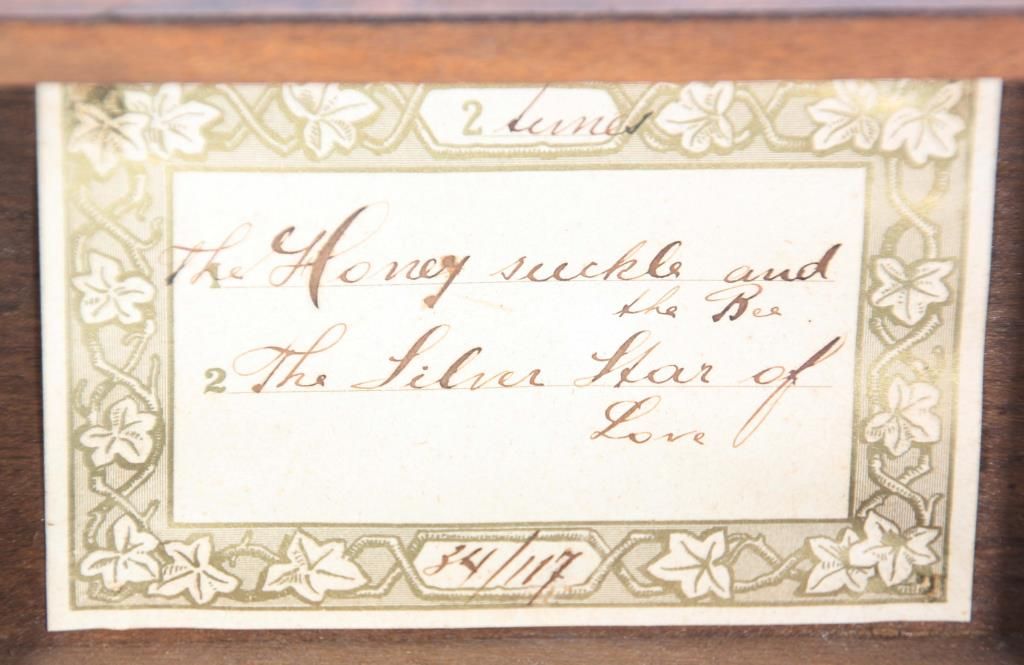 2 tunes
1 The Honey suckle and
the Bee
2 The Silver Star of
Love
34/117